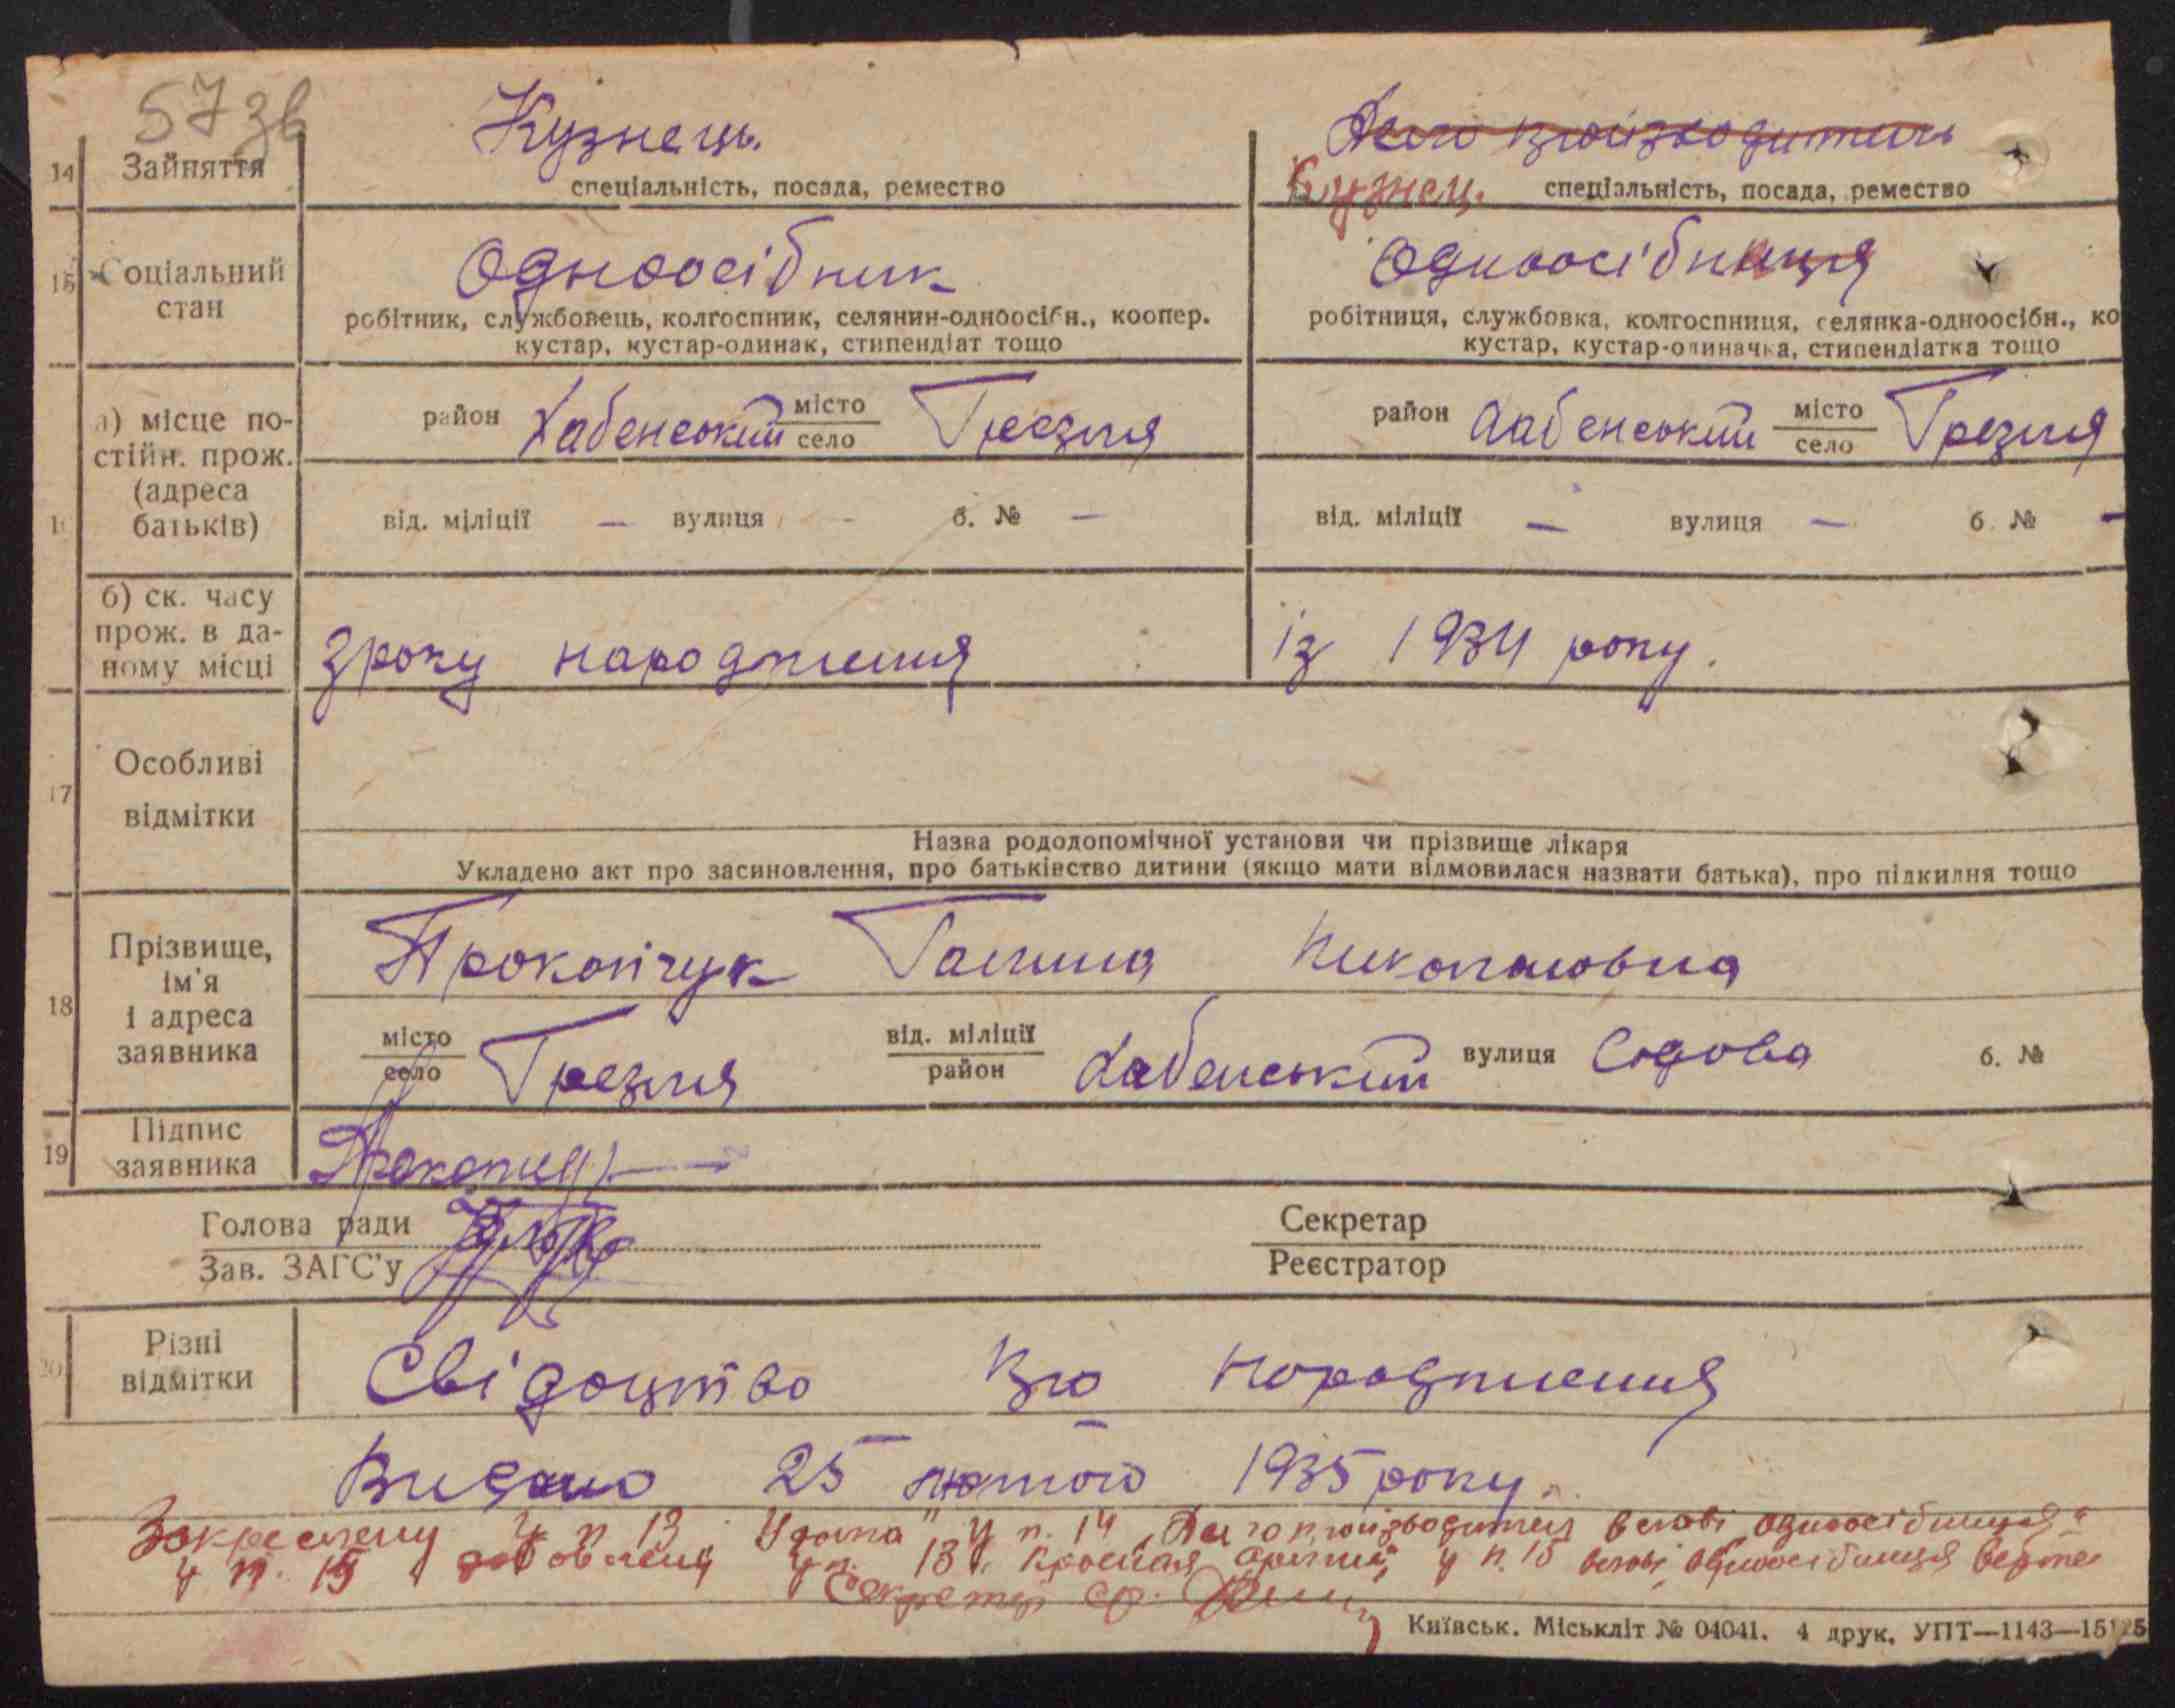 57зв
Кузнець. Дело производитель
14 Зайняття спеціальність, посада, ремество Кузнец. спеціальність, посада, ремество
Одноосібник Одноосібниця
15 Соціальний стан
робітник, службовець, колгоспник, селянин-одноосібн., коопер. робітниця, службовка, колгоспниця, селянка-одноосібн., ко
кустар, кустар-одинак, стипендіат тощо кустар, кустар-одиначка, стипендіатка тощо
а) місце постійн. прож. (адреса батьків)
район Хабенський місто село Грезля район Хабенський місто село Грезля
від. міліції — вулиця - б. № — від. міліції — вулиця — б. № —
б) ск. часу прож. в даному місці
З року народження із 1934 року.
17 Особливі відмітки
Назва рододопомічної установи чи прізвище лікаря
Укладено акт про засиновлення, про батьківство дитини (якщо мати відмовилася назвати батька), про підкидня тощо
18 Прізвище, ім'я і адреса заявника
Прокопчук Галина Николаовна
місто село Грезля від. міліції район Хабенський вулиця Садова б. №
19 Підпис заявника
Голова ради Секретар
Зав. ЗАГС'у Реєстратор
20 Різні відмітки
Свідоцтво про народження
Видано 25 лютого 1935 року.
Закреслену у п. 13 у п. 14 Делопроизводитель в слові одноосібниця
у п. 15 добовлену у п. 13 Красная армия у п. 15 слові одноосібниця
Секретар ср.
Київськ. Міськліт № 04041. 4 друк. УПТ—1143—15125